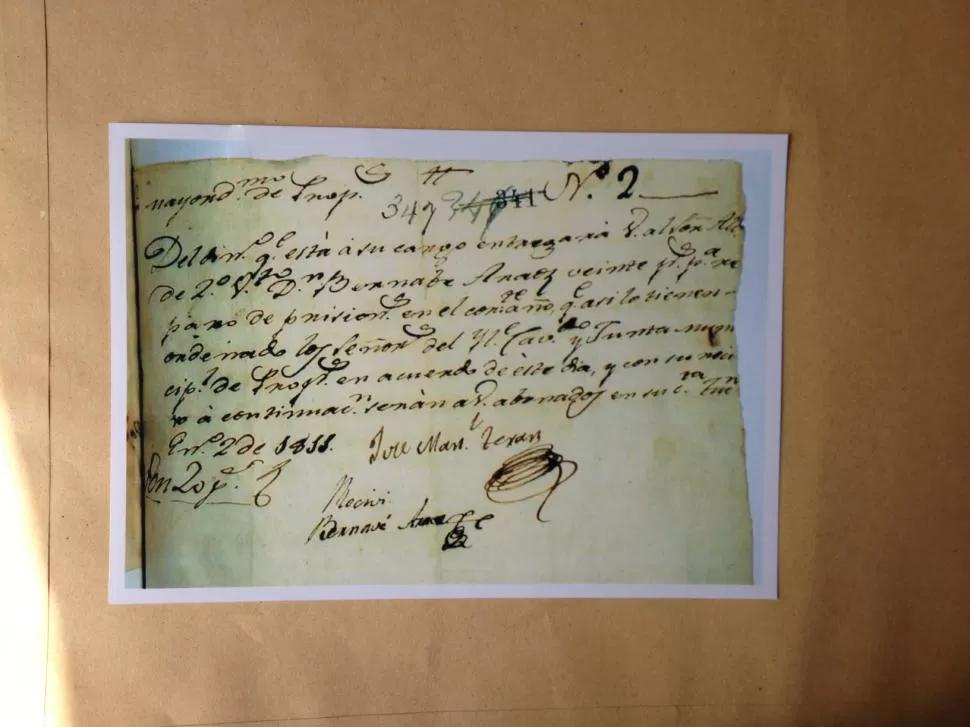 mayord.mo de Prop.s N.o 2
347 341
Del din.o q.e està à su cargo entregarà V. al Señ.r Alc.
de 2.o V.to D.n Bernabe Araoz veinte p.s p.a re
paro de prision.s en el corr.te año, q.e asi lo tienen
ordenado los Señor.s del Yl.e Cav.do y Junta mun
cip.l de Prop.s en acuerdo de èste dia, y con su reci
vo à continuac.n seràn a V. abonados en su c.ta Tucu.n
En.o 2 de 1811.
Jose Man.l Teran
Son 20 p.s
Recivi
Bernavé Araoz